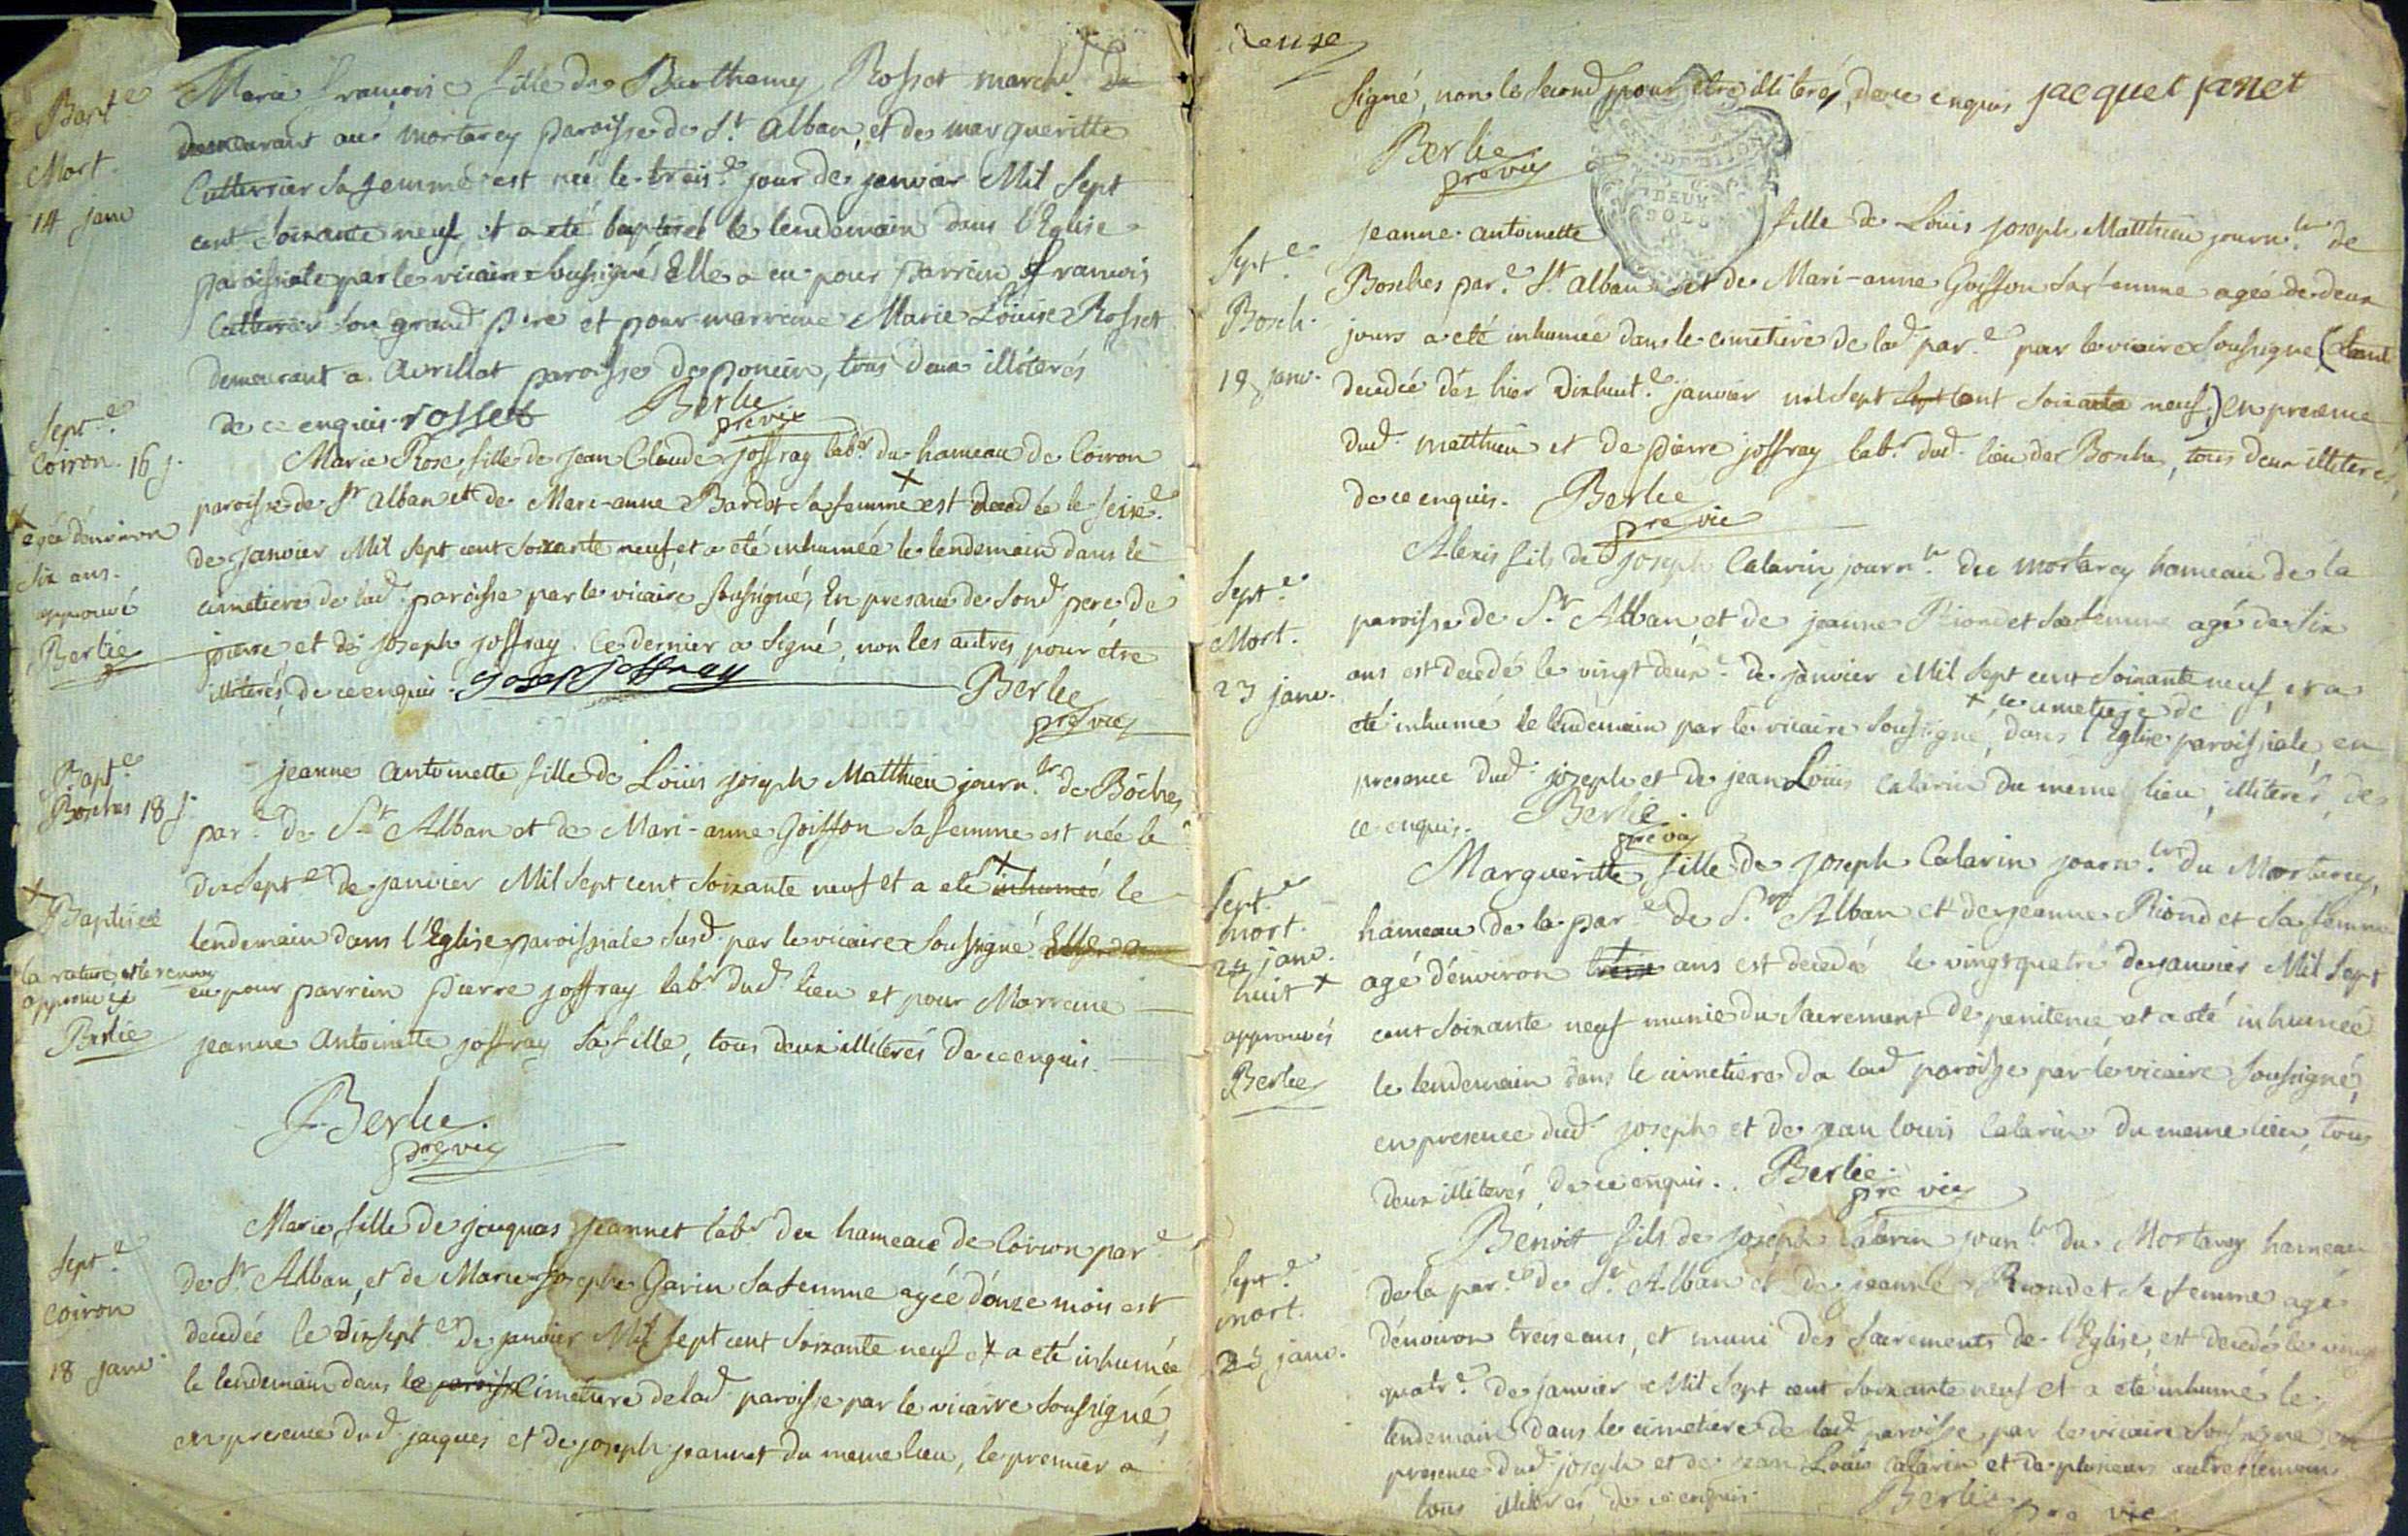 Bapt.e
Mort.
14 janv
Marie francoise fille de Barthemy Rosset march.d de
demeurant au mortarey paroisse de S.t alban, et de margueritte
Cutterrier sa femme est neé le trais.e jour de janvier Mil Sept
cent Soixante neuf, et a eté baptiseé le lendemain dans l'Eglise
paroissiale par le vicaire soussigné Elle a eu pour parrein francois
Cutterier son grand pere et pour marreine Marie Louise Rosset
demeurant a avrillat paroisse de poncin, tous deux illiterés
de ce enquis. rosset Berlie
pre vic
Sept.e
Coiron. 16 j.
Marie Rose fille de jean Claude joffray lab.r du hameau de Coiron
paroisse de S.t alban et de Mari-anne Bardot sa femme x est decedée le seize.e
x
ageé d'environ
six ans.
approuvé
Berlie
de janvier Mil Sept cent soixante neuf et a eté inhumeé le lendemain dans le
cimetiere de lad. paroisse par le vicaire soussigné, En presance de sond. pere de
pierre et de joseph joffray. Ce dernier a signé, non les autres pour etre
illiterés, de ce enquis. Josep joffray Berlie
pre vic
Bapt.e
Bosches 18 j.
jeanne antoinette fille de Loüis joseph Matthieu journ.lr de Bôches
par.e de S.t Alban et de Mari-anne Goiffon sa femme est née le
dixsept.e de janvier Mil Sept cent soixante neuf et a eté x inhumeé le
x
Baptiseé
la rature et le renvoy
approuvés
Berlie
lendemain dans l'Eglise paroissiale susd. par le vicaire soussigné. Elle a
eu pour parrein pierre joffray lab.r dud. lieu et pour Marreine
jeanne antoinette joffray sa fille, tous deux illiterés de ce enquis.
Berlie
pre vic
Sept.e
Coiron
18 janv.
Marie fille de jacques jeannet lab.r du hameau de Coiron par.e
de S.t Alban, et de Marie-josephe Garin sa femme ageé d'onze mois est
decedée le dixsept.e de janvier Mil sept cent soixante neuf et a eté inhumée
le lendemain dans le paroisse Cimetiere de lad. paroisse par le vicaire soussigné,
en presence dud. jacques et de joseph jeannet du meme lieu, le premier a
deuxe
signé, non le second pour etre illiteré, de ce enquis jacquet janet
Berlie
pre vic
DE DIJON
DEUX
SOLS
Sept.e
Bosch.
19 janv.
jeanne antoinette fille de Loüis joseph Matthieu journ.lr de
Bosches par.e S.t alban et de Mari-anne Goiffon sa femme ageé de deux
jours a eté inhumée dans le cimetiere de lad. par.e par le vicaire soussigné (etant
decedée dès hier dixhuit.e janvier mil sept sept cent soixante neuf,) en presence
dud. matthieu et de pierre joffray lab.r dud. lieu de Bosche, tous deux illiterés,
de ce enquis. Berlie
pre vic
Sept.e
Mort.
23 janv.
Alexis fils de joseph Calarin journ.lr du mortarey hameau de la
paroisse de S.t Alban, et de jeanne Riondet sa femme agé de six
ans est decedé le vingt deux.e de janvier Mil Sept cent soixante neuf, et a
x le cimetiere de
eté inhumé le lendemain par le vicaire soussigné, dans l'Eglise paroissiale, en
presence dud. joseph et de jean Loüis Calarin du meme lieu, illiterés, de
ce enquis. Berlie
pre vic
Sept.e
mort.
24 janv.
huit x
approuvés
Berlie
Margueritte fille de joseph Calarin journ.lr du Mortarey,
hameau de la par.e de S.t Alban et de jeanne Riondet sa femme
agé d'environ x ans est decedé le vingt quatre de janvier Mil Sept
cent soixante neuf munie du sacrement de penitence et a eté inhumeé
le lendemain dans le cimetiere de lad. paroisse par le vicaire soussigné,
en presence dud. joseph et de jean louis Calarin du meme lieu, tous
deux illiterés, de ce enquis. Berlie
pre vic
Sept.e
mort.
25 janv.
Benoit fils de joseph Calarin journ.lr du Mortarey hameau
de la par.e de S.t Alban et de jeanne Riondet sa femme agé
d'environ treise ans, et muni des sacrements de l'Eglise, est decedé le vingt
quatr.e de janvier Mil Sept cent soixante neuf et a eté inhumé le
lendemain dans le cimetiere de lad. paroisse par le vicaire soussigné, en
presence dud. joseph et de jean Loüis Calarin et de plusieurs autres temoins
tous illiterés, de ce enquis. Berlie pre vic